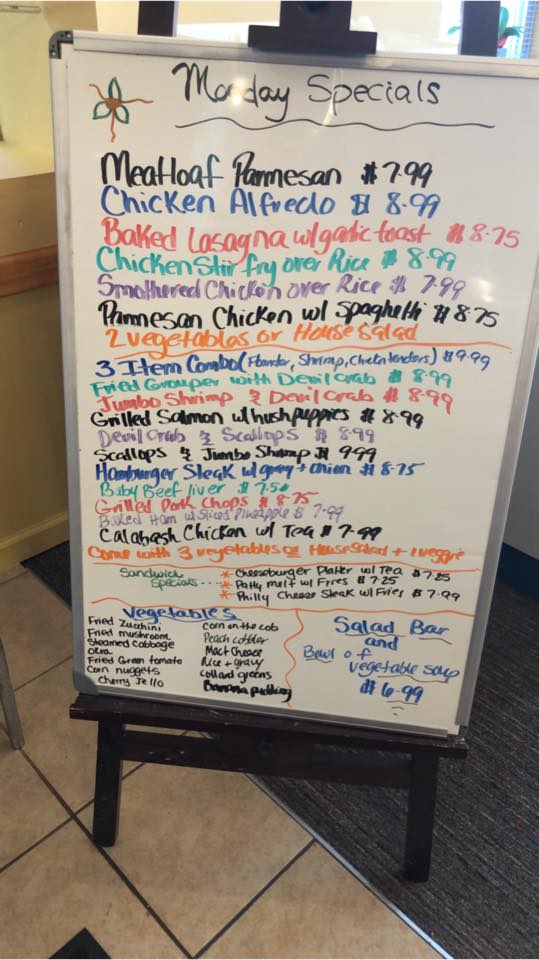 Monday Specials
Meatloaf Parmesan $7.99
Chicken Alfredo $ 8.99
Baked Lasagna w/garlic toast $ 8.75
Chicken Stir fry over Rice $ 8.99
Smothered Chicken over Rice $ 7.99
Parmesan Chicken w/ spaghetti $ 8.75
2 vegetables or House Salad
3 Item Combo (Flounder, Shrimp, Chicken tenders) $9.99
Fried Grouper with Devil Crab $ 8.99
Jumbo Shrimp & Devil Crab $ 8.99
Grilled Salmon w/ hushpuppies $ 8.99
Devil Crab & Scallops $ 8.99
Scallops & Jumbo Shrimp $ 9.99
Hamburger Steak w/ gravy + onion $ 8.75
Baby Beef liver $ 7.50
Grilled Pork Chops $ 8.75
Baked Ham w/ Sliced Pineapple $ 7.99
Calabash Chicken w/ Tea $ 7.99
Come with 3 vegetables or House Salad + 1 veggie
Sandwich Specials ----
* Cheeseburger Platter w/ Tea $ 7.25
* Patty melt w/ Fries $ 7.25
* Philly Cheese Steak w/ Fries $ 7.99
Vegetables
Fried Zucchini
Fried mushroom
Steamed Cabbage
okra
Fried Green tomato
Corn nuggets
Cherry Jello
Corn on the cob
Peach cobbler
Mac + Cheese
Rice + gravy
collard greens
Banana pudding
Salad Bar
and
Bowl of
vegetable soup
$ 6.99